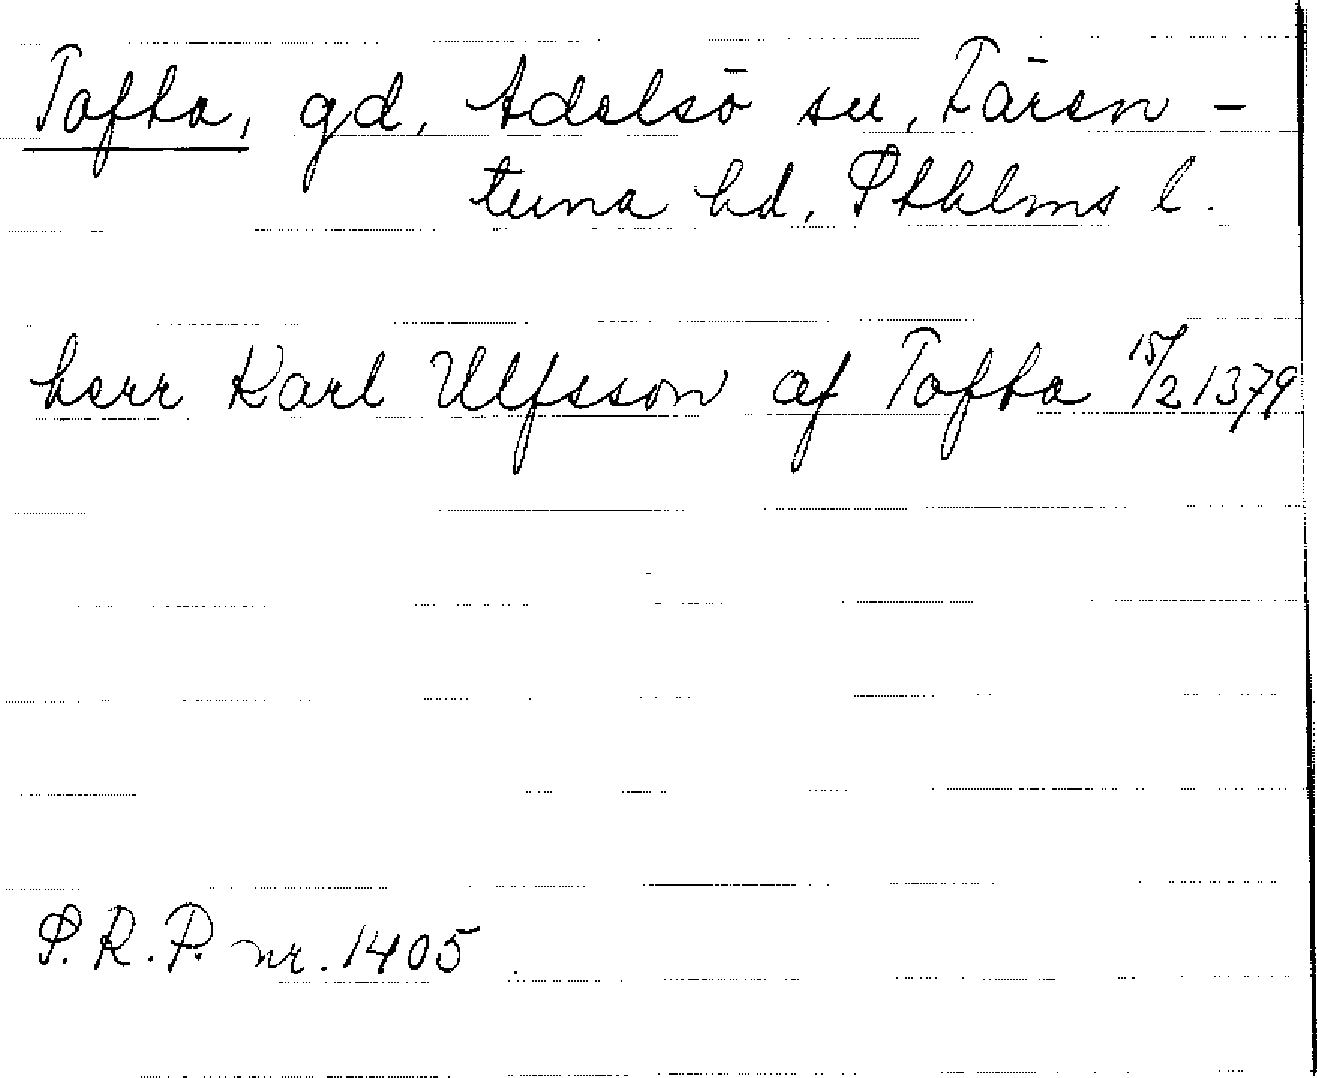 Tofta, gd, Adelsö sn, Fären-
tuna hd, Sthlms l.
herr Karl Ulfsson af Tofta 15/2 1379
S.R.P. nr. 1405